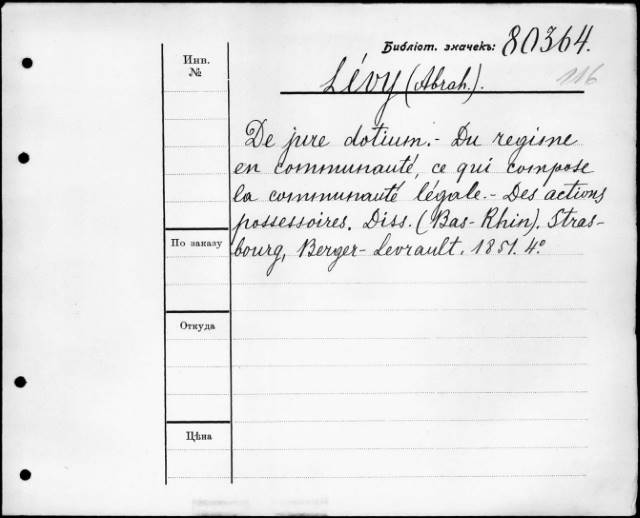 Библіот. значекъ: 80364.
116
Инв.
№
Lévy (Abrah.).
De jure dotium.- Du regime
en communauté, ce qui compose
la communauté légale.- Des actions
possessoires. Diss. (Bas-Rhin). Stras-
bourg, Berger-Levrault. 1851. 4°.
По заказу
Откуда
Цѣна